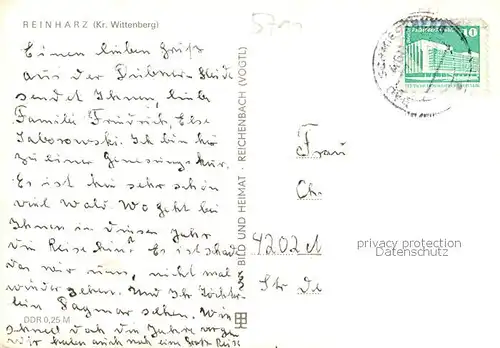 REINHARZ (Kr. Wittenberg)
Einen lieben Gruß
aus der Dübener Heide
sendet Ihnen, liebe
Familie Friedrich, Else
Ich bin hier
zu einer Genesungskur.
Es ist hier sehr schön
viel Wald. Wo geht bei
Ihnen in diesem Jahr
die Reise hin? Es ist schade
das wir uns, nicht mal
wieder sehen. Und Ihr Töchter-
lein Dagmar sehen. Wie
schnell doch die Jahre
wir haben auch noch eine Reise
DDR 0,25 M
BILD UND HEIMAT · REICHENBACH (VOGTL)
10
Frau
Ch.
4202
Str De
privacy protection
Datenschutz